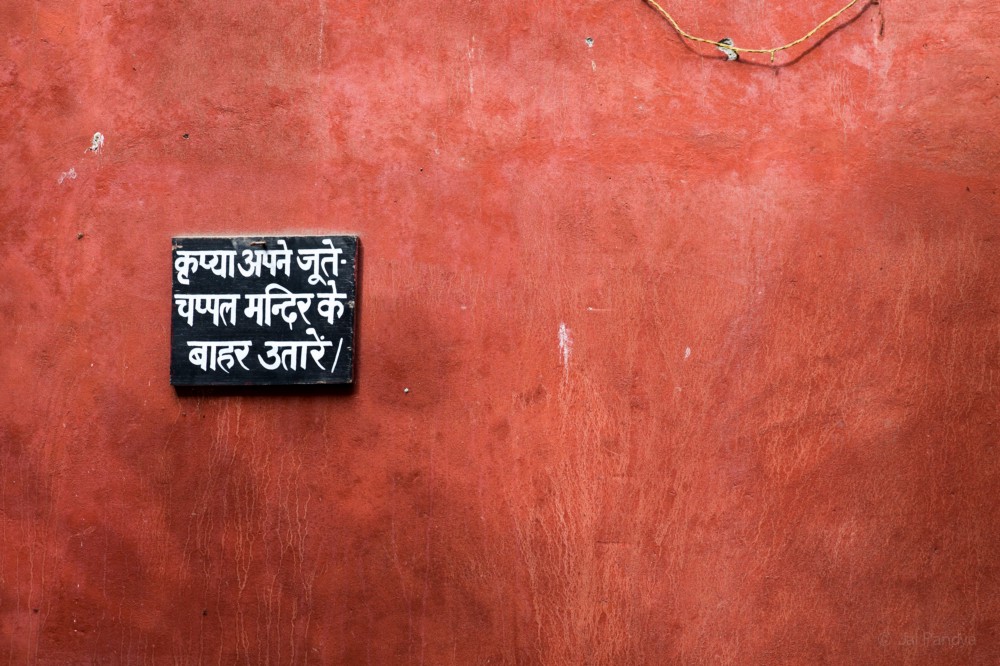 कृप्या अपने जूते-
चप्पल मन्दिर के
बाहर उतारें/
© Jai Pandya